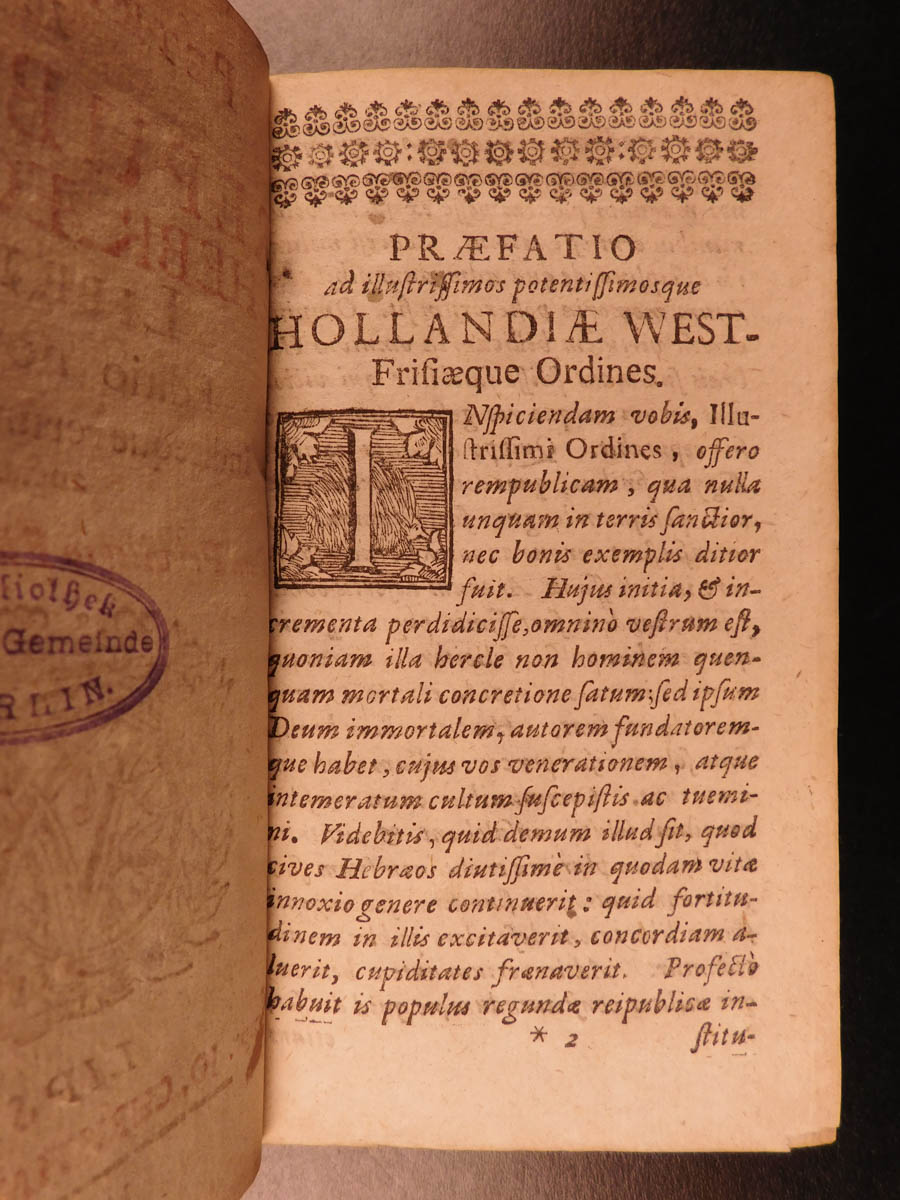 PRÆFATIO
ad illuſtriſſimos potentiſſimosque
HOLLANDIÆ WEST-
Friſiæque Ordines.
INſpiciendam vobis, Illu-
ſtriſſimi Ordines, offero
rempublicam, qua nulla
unquam in terris ſanctior,
nec bonis exemplis ditior
fuit. Hujus initia, & in-
crementa perdidiciſſe, omninò veſtrum eſt,
quoniam illa hercle non hominem quen-
quam mortali concretione ſatum: ſed ipſum
Deum immortalem, autorem fundatorem-
que habet, cujus vos venerationem, atque
intemeratum cultum ſuſcepiſtis ac tuemi-
ni. Videbitis, quid demum illud ſit, quod
cives Hebræos diutiſſimè in quodam vitæ
innoxio genere continuerit: quid fortitu-
dinem in illis excitaverit, concordiam a-
luerit, cupiditates frænaverit. Profectò
habuit is populus regundæ reipublicæ in-
* 2 ſtitu-
Gemeinde